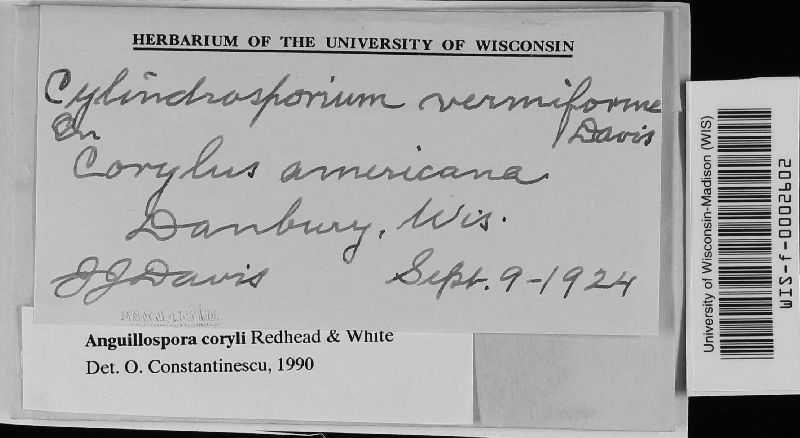 HERBARIUM OF THE UNIVERSITY OF WISCONSIN
Cylindrosporium vermiforme
Davis
On
Corylus americana
Danbury, Wis.
JJ Davis Sept. 9-1924
Anguillospora coryli Redhead & White
Det. O. Constantinescu, 1990
University of Wisconsin-Madison (WIS)
WIS-f-0002602